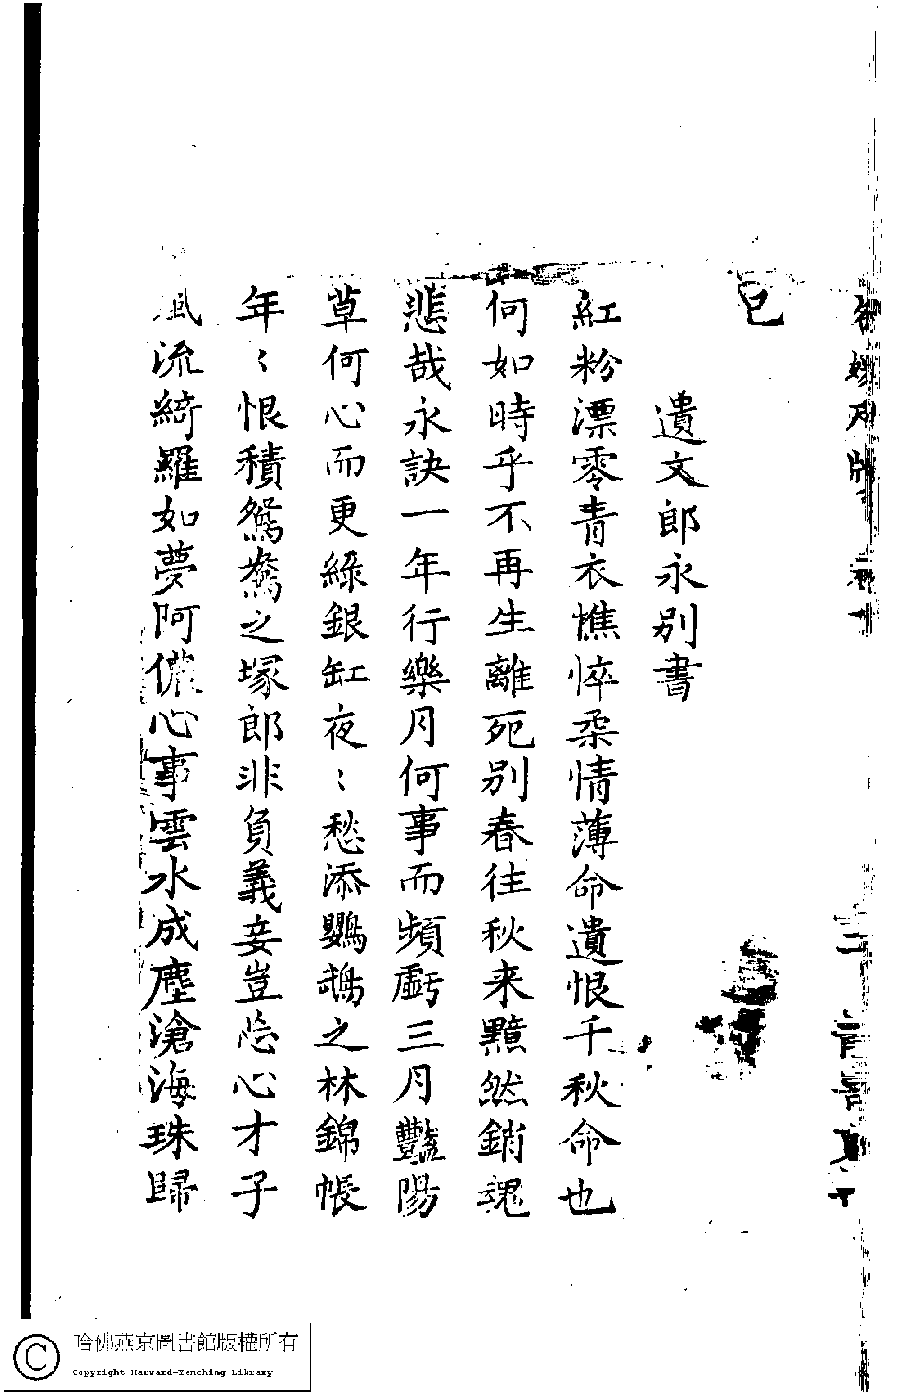 已
遺文郎永別書
紅粉漂零青衣憔悴柔情薄命遺恨千秋命也
何如時乎不再生離死別春往秋来黯然銷魂
悲哉永訣一年行樂月何事而頻虧三月艷陽
草何心而更綠銀缸夜〻愁添鸚鵡之林錦帳
年〻恨積鴛鴦之塚郎非負義妾豈忘心才子
風流綺羅如夢阿儂心事雲水成塵滄海珠歸
哈佛燕京圖書館版權所有
Copyright Harvard-Yenching Library